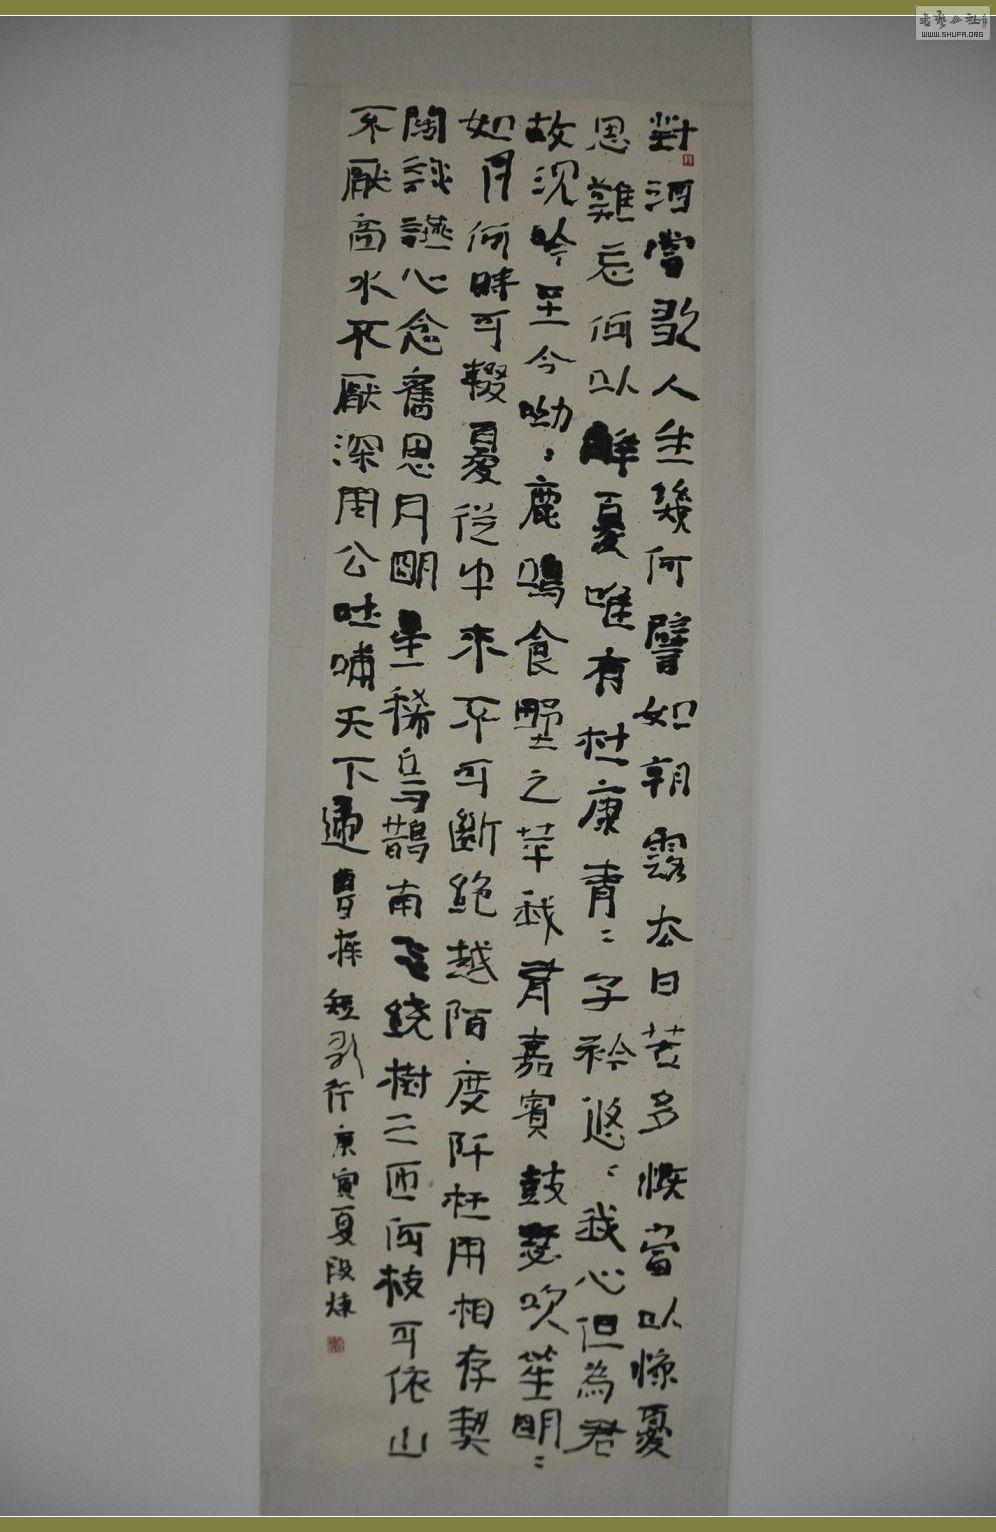 對酒當歌人生幾何譬如朝露去日苦多慨當以慷憂
思難忘何以解憂唯有杜康青〻子衿悠〻我心但為君
故沉吟至今呦〻鹿鳴食野之苹我有嘉賓鼓瑟吹笙明〻
如月何時可輟憂從中來不可斷絕越陌度阡枉用相存契
闊談讌心念舊恩月明星稀烏鵲南飛繞樹三匝何枝可依山
不厭高水不厭深周公吐哺天下歸曹操短歌行庚寅夏段煉
書藝公社
WWW.SHUFA.ORG